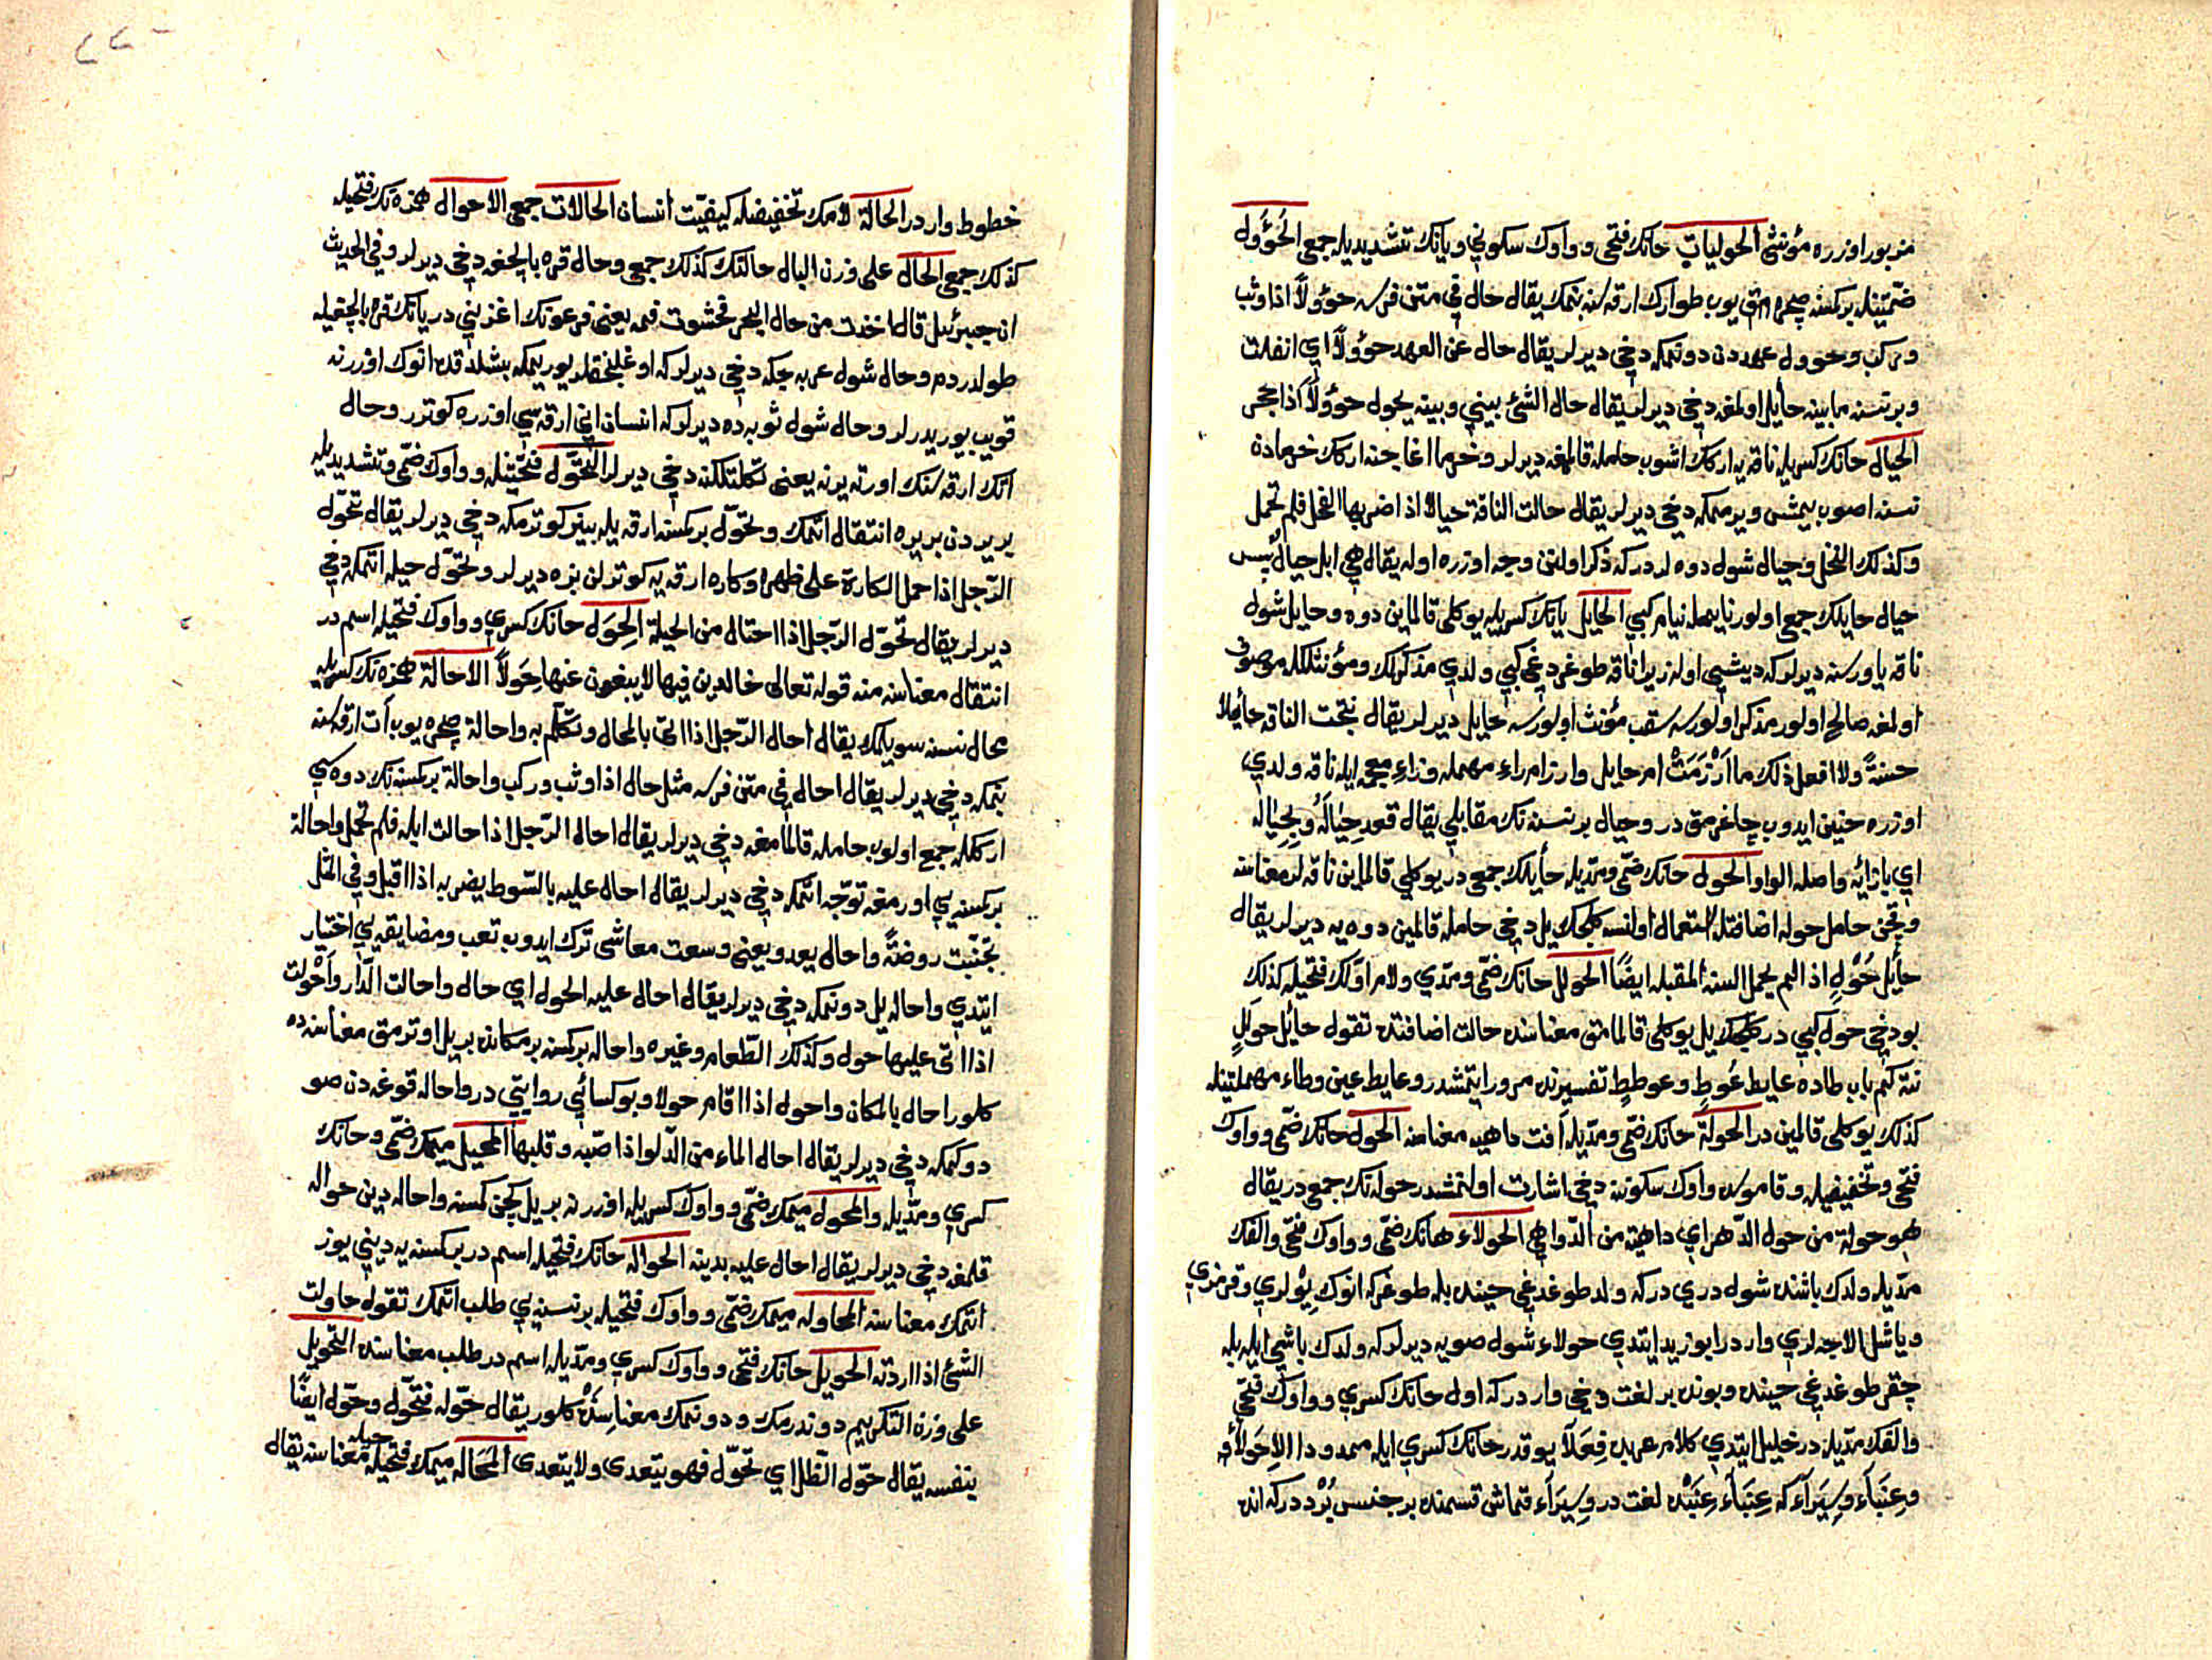 مزبور اوزره مؤنثى الحوليات حانك فتحى وواوك سكونى ويانك تشديديله جمعى الحُؤول
ضمّتينله بركسنه صچره مق يوب طوارك ارقه سنه بنمك يقال حال فى متن فرسه حؤولاً اذا وثب
وركب وحوول عهددن دونمكه دخى ديرلر يقال حال عن العهد حؤولاً اى انفلت
وبر نسنه مابينه حايل اولمغه دخى ديرلر يقال حال الشئ بينى وبينه يحول حوؤلاً اذا حجز
الحيال حانك كسريله ناقه يه اركك اشوب حامله قالمغه ديرلر وخرما اغاجنه اركك خرمادن
نسنه اصوب يمش ويرممكه دخى ديرلر يقال حالت الناقة حيالا اذا ضربها الفحل فلم تحمل
وكذلك النخل وحيال شول دوه لردركه ذكر اولنن وجه اوزره اوله يقال هى ابل حيال پس
حيال حايلك جمعى اولور نايمله نيام كبى الحايل يانك كسريله يوكلى قالماين دوه وحايل شول
ناقه ياوريسنه ديرلركه ديشى اوله زيرا ناقه طوغردغى كبى ولدى مذكرلك ومؤنثلكله موصوف
اولمغه صالح اولور مذكر اولورسه سقب مؤنث اولورسه حايل ديرلر يقال نتجت الناقه حائلا
حسنةً ولا افعل ذلك ما اَرْزَمَتْ ام حايل وارزام راء مهمله وزاء معجمه ايله ناقه ولدى
اوزره حنين ايدوب چاغرمق در وحيال بر نسنه نك مقابلى يقال قعد حِيَالَهُ وبِحِيَالِهِ
اى بازائه واصله الواو الحول حانك ضمّى ومدّيله حأيلك جمعى در يوكلى قالماين ناقه لر معناسنه
وقچن حامل حوله اضافتله استعمال اولنسه كلجك يل دخى حامله قالمين دوه يه ديرلر يقال
حأيل حُوْلٍ اذا لم يحمل السنه المقبله ايضًا الحولل حانك ضمّى ومدّى ولام اوّلك فتحيله كذلك
بودخى حول كبى در كلجك يل يوكلى قالمامق معناسنه حالت اضافتده تقول حائل حولَلٍ
نته كيم باب طاده عايط عُوطٍ وعوططٍ تفسيرنده مرور ايتمشدر وعايط عين وطاء مهملتينله
كذلك يوكلى قالمين در الحولة حانك ضمّى ومدّيله اَفت داهيه معناسنه الحول حانك ضمّى وواوك
فتحى وتخفيفيله وقاموسده واوك سكونه دخى اشارت اولنمشدر حوله نك جمعى در يقال
هو حولة من حول الدّهر اى داهية من الدّواهى الحولاء حانك ضمّى وواوك فتحى والفك
مدّيله ولدك باشنده شول درى دركه ولد طوغدغى حينده بله طوغركه انوك يوللرى وقرمزى
وياشل الاجه لرى واردر ابوزيد ايتدى حولاء شول صويه ديرلركه ولدك باشى ايله بله
چقر طوغدغى حينده وبونده بر لغت دخى واردركه اول حانك كسرى وواوك فتحى
والفك مدّيله در خليل ايتدى كلام عربده فِعَلاَ يوقدر حانك كسرى ايله ممدودا الا حِوَلاَءُ
وعِنَبَاء وسِيَرَاءَ كه عِنَبَاء عِنَبْده لغت در وسِيَرَاء قماش قسمنده بر جنس بُرْددركه انده
خطوط واردر الحالة لامك تخفيفيله كيفيّت انسان الحالات جمعى الاحوال همزه نك فتحيله
كذلك جمعى الحال على وزن البال حالتك كذلك جمعى وحال قره بالچغه دخى ديرلر وفى الحديث
ان جبرئيل قال اخذت من حال البحر فحشوت فمه يعنى فرعونك اغزينى دريانك قره بالچغيله
طولدردم وحال شول عربه جكه دخى ديرلركه اوغلنجقلر يوريمكه بشلدقده انوك اوزرنه
قويب يوريدرلر وحال شول ثوبه ده ديرلركه انسان انى ارقه سى اوزره كوترر وحال
اتك ارقه سنك اورته يرنه يعنى تكلتلكنه دخى ديرلر التحوّل فتحتينله وواوك ضمّى وتشديديله
بر يردن بر يره انتقال اتمك وتحوّل بركسنه ارقه يله بينز كوترمكه دخى ديرلر يقال تحوّل
الرّجل اذا حمل الكارة على ظهره وكاره ارقه يه كوترلن بزه ديرلر وتحوّل حيله اتمكه دخى
ديرلر يقال تحوّل الرّجل اذا احتال من الحيلة الحِوَل حانك كسرى وواوك فتحيله اسم در
انتقال معناسنه منه قوله تعالى خالدين فيها لا يبغون عنها حِوَلاً الاحالة همزه نك كسريله
محال نسنه سويلمك يقال احال الرّجل اذا اتى بالمحال وتكلّم به واحالة صچره يوب اَت ارقه سنه
بنمكه دخى ديرلر يقال احال فى متن فرسه مثل حال اذا وثب وركب واحالة بركسنه نك دوه سى
اركككله جمع اولوب حامله قالمامغه دخى ديرلر يقال احال الرّجل اذا حالت ابله فلم تحمل واحالة
بركسنه يى اورمغه توجّه اتمكه دخى ديرلر يقال احال عليه بالسّوط يضربه اذا اقبل وفى المثل
تجنّبت روضةً واحال يعدو يعنى وسعت معاشى ترك ايدوب تعب ومضايقه يى اختيار
ايتدى واحاله يل دونمكه دخى ديرلر يقال احال عليه الحول اى حال واحالت الدّار واَحْولت
اذا اتى عليها حول وكذلك الطّعام وغيره واحاله بركسنه بر مكانده بر يل اوترمق معناسنده
كلور احال بالمكان واحول اذا اقام حولا وبو كسائى روايتى در واحاله قوغه دن صو
دوكمكه دخى ديرلر يقال احال الماء من الدّلو اذا صبّه وقلبها المحيل ميمك ضمّى وحانك
كسرى ومدّيله والمحول ميمك ضمّى وواوك كسريله اوزرنه بر يل كچن كمسنه واحاله دين حواله
قلمغه دخى ديرلر يقال احال عليه بدينه الحواله حانك فتحيله اسم در بركسنه يه دينى يوز
اتمك معناسنه المحاوله ميمك ضمّى وواوك فتحيله بر نسنه يى طلب اتمك تقول حاولت
الشئ اذا اردته الحويل حانك فتحى وواوك كسرى ومدّيله اسم در طلب معناسنده التحويل
على وزن التكريم دوندرمك ودونمك معناسنده كلور يقال حوّله فتحوّل وحوّل ايضًا
بنفسه يقال حوّل الظّل اى تحوّل فهو يتعدى ولا يتعدى المحاله ميمك فتحيله حيله معناسنه يقال